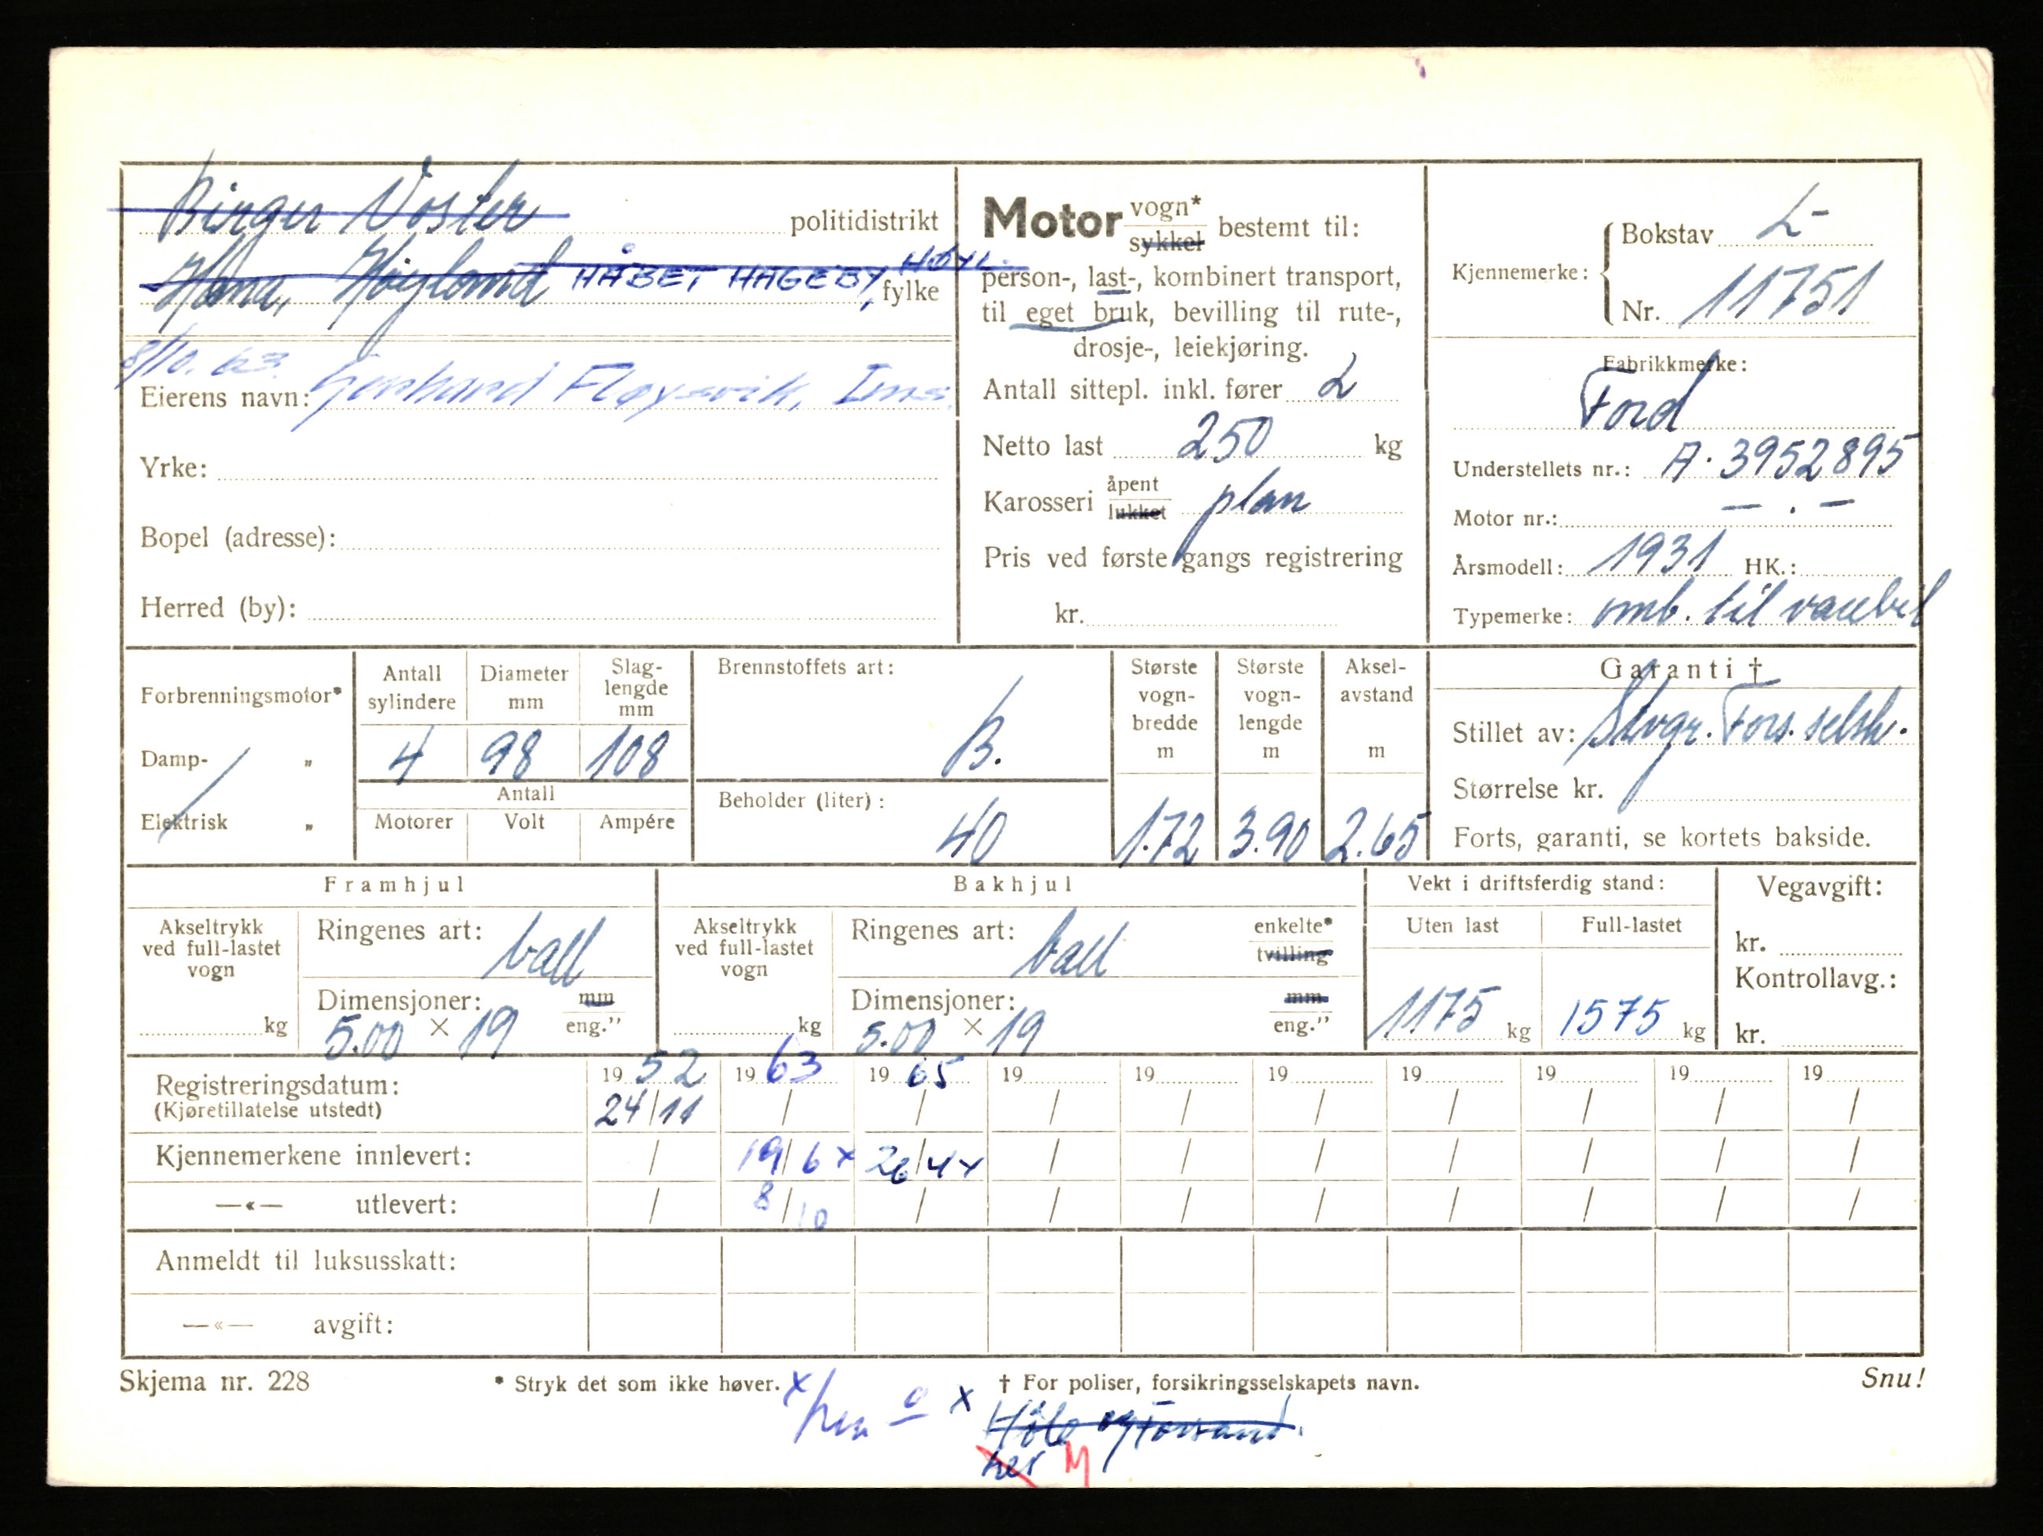 Birger Voster politidistrikt
Hana, Høyland HÅBET HAGEBY, HØYL. fylke
8/10.63.
Eierens navn: Fløysvik, Ims.
Yrke:
Bopel (adresse):
Herred (by):
Motor vogn* sykkel bestemt til:
person-, last-, kombinert transport,
til eget bruk, bevilling til rute-,
drosje-, leiekjøring.
Antall sittepl. inkl. fører 2
Netto last 250 kg
Karosseri åpent lukket plan
Pris ved første gangs registrering
kr.
Kjennemerke: Bokstav L-
Nr. 11751
Fabrikkmerke:
Ford
Understellets nr.: A. 3952895
Motor nr.: — . —
Årsmodell: 1931 HK.:
Typemerke: omb. til varebil
Forbrenningsmotor*
Damp- „
Elektrisk „
Antall sylindere Diameter mm Slag-lengde mm
4 98 108
Antall
Motorer Volt Ampére
Brennstoffets art:
B.
Beholder (liter):
40
Største vogn-bredde m 1.72
Største vogn-lengde m 3.90
Aksel-avstand m 2.65
Garanti †
Stillet av: Stvgr. Fors. selsk.
Størrelse kr.
Forts, garanti, se kortets bakside.
Framhjul
Akseltrykk ved full-lastet vogn kg
Ringenes art: ball
Dimensjoner: mm eng.”
5.00 × 19
Bakhjul
Akseltrykk ved full-lastet vogn kg
Ringenes art: ball enkelte* tvilling
Dimensjoner: mm eng.”
5.00 × 19
Vekt i driftsferdig stand:
Uten last Full-lastet
1175 kg 1575 kg
Vegavgift:
kr.
Kontrollavg.:
kr.
Registreringsdatum: 1952 1963 1965 19 19 19 19 19 19 19
(Kjøretillatelse utstedt) 24/11 / / / / / / / / /
Kjennemerkene innlevert: / 19/6 x 26/4 x / / / / / / /
—«— utlevert: / 8/10 / / / / / / / /
Anmeldt til luksusskatt:
—«— avgift:
Skjema nr. 228 * Stryk det som ikke høver. † For poliser, forsikringsselskapets navn. Snu!
x
x Høle og Forsand.
her M